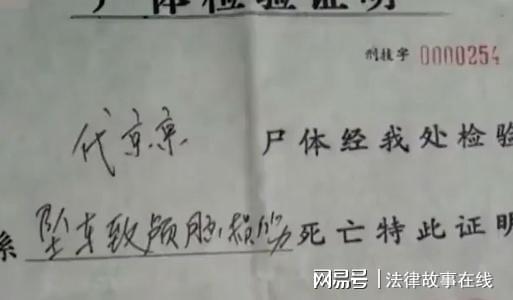 尸体检验证明
刑技字 0000254
代京京 尸体经我处检验
系 坠车致颅脑损伤死亡特此证明
网易号 法律故事在线